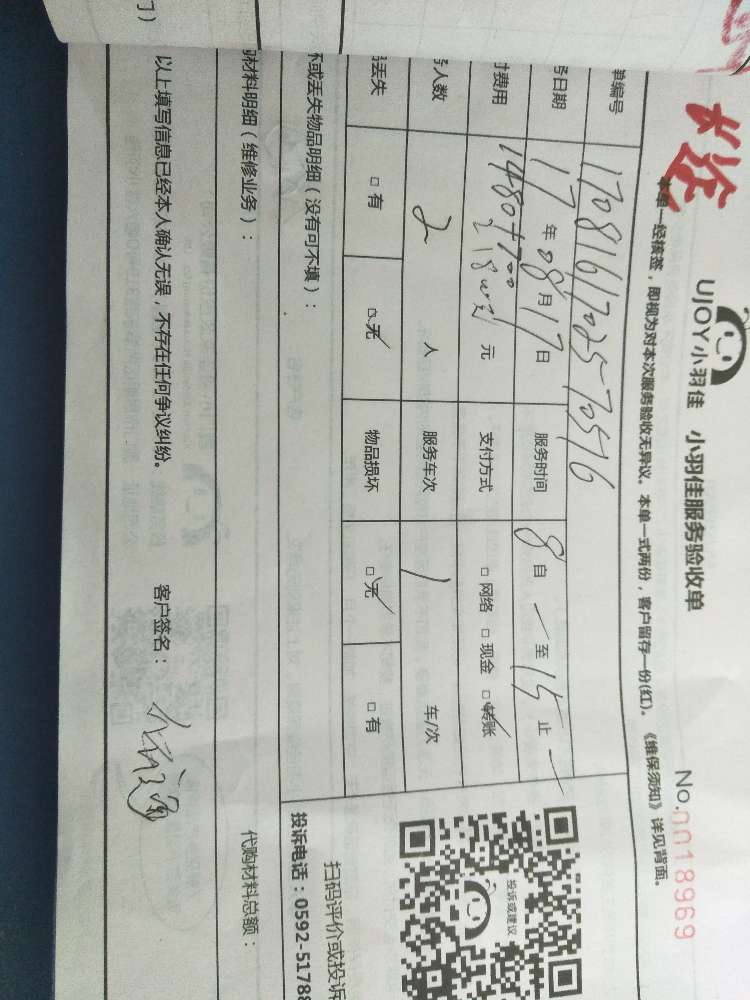 UJOY小羽佳 小羽佳服务验收单
No.0018969
本单一经核签，即视为对本次服务验收无异议。本单一式两份，客户留存一份(红)。《维保须知》详见背面。
单编号 1708161702570576
务日期 17年08月17日 服务时间 8自 至15止
付费用 1480+700 元 支付方式 □网络 □现金 □转账
务人数 2 人 服务车次 1 车/次
品丢失 □有 □无 物品损坏 □无 □有
投诉或建议
扫码评价或投诉
坏或丢失物品明细（没有可不填）：
投诉电话：0592-5178
购材料明细（维修业务）： 代购材料总额：
以上填写信息已经本人确认无误，不存在任何争议纠纷。 客户签名：